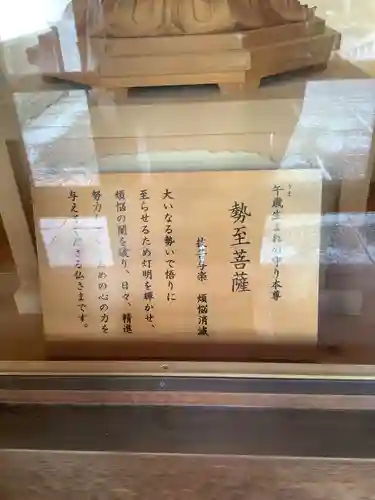 午歳生まれの守り本尊
うま
勢至菩薩
抜苦与楽 煩悩消滅
大いなる勢いで悟りに
至らせるため灯明を輝かせ、
煩悩の闇を破り、日々、精進
努力 ための心の力を
与え くださる仏さまです。